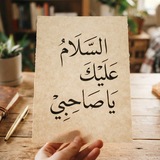 السَّلَامُ
عَلَيْكَ
يَا صَاحِبِيْ